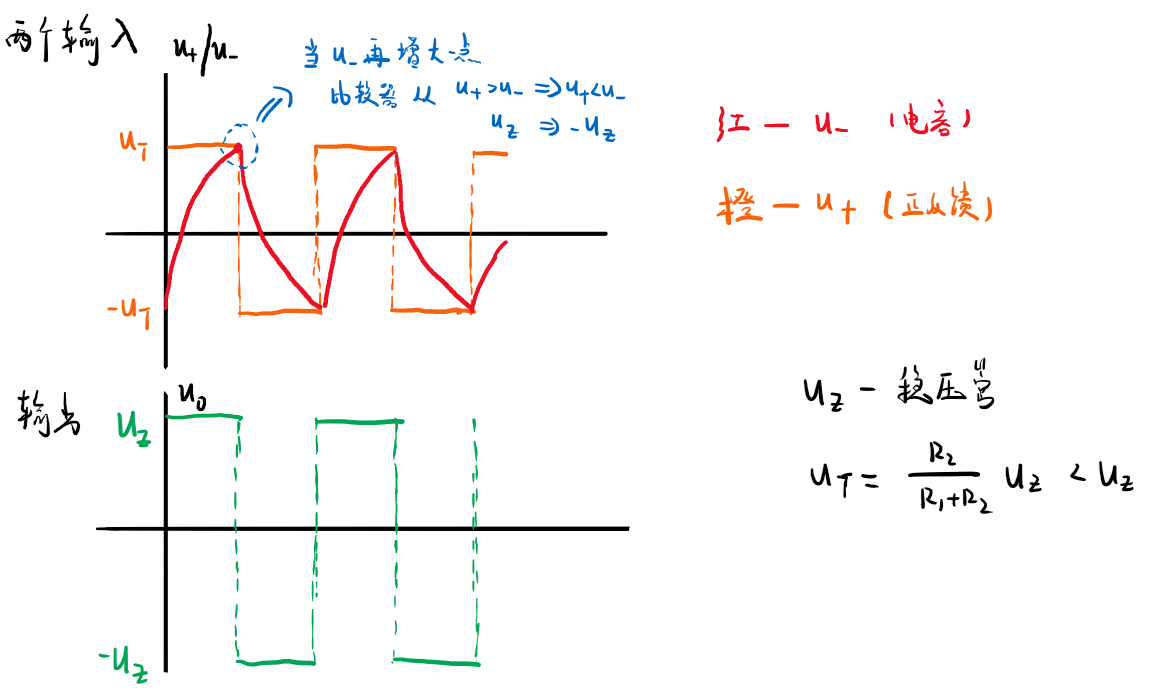 两个输入
u+/u-
当 u- 再增大一点
比较器从 u+>u- ⇒ u+<u-
uz ⇒ -uz
红 — u- (电容)
橙 — u+ (正反馈)
uT
-uT
输出
uo
uz
-uz
uz — 稳压管
uT = R2/(R1+R2) uz < uz